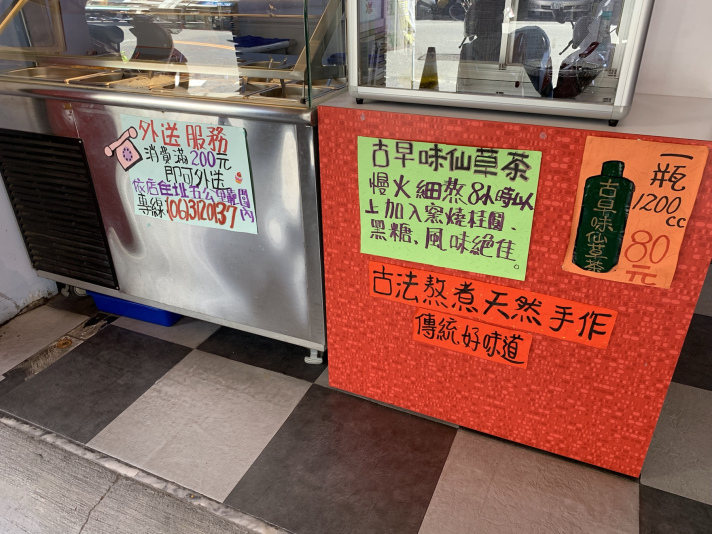 外送服務
消費滿200元
即可外送
依店住址5公里範圍內
專線(06)3120137
古早味仙草茶
慢火細熬8小時以
上加入窯燒桂圓、
黑糖、風味絕佳。
古法熬煮天然手作
傳統好味道
一瓶
1200
cc
80
元
古早味仙草茶